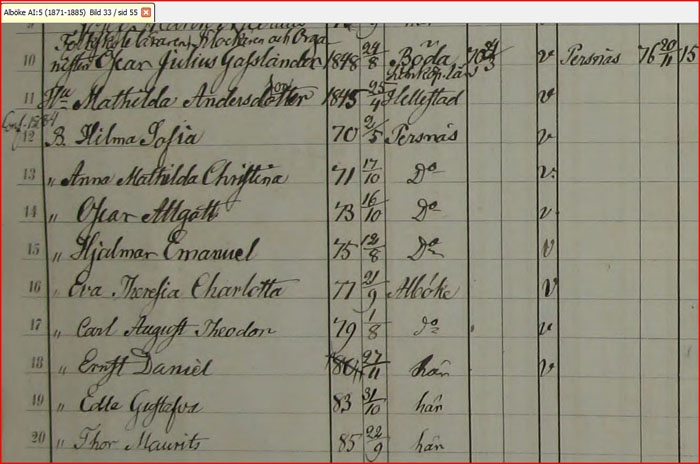 Alböke AI:5 (1871-1885) Bild 33 / sid 55
Folkskoleläraren, Klockaren och Orga
10 nisten Oscar Julius Gassländer 1848 24/8 Böda 70 24/3 v Persnäs 76 20/11 15
11 Hu Mathilda Andersdotter 1845 25/4 Hellestad v
12 B. Hilma Sofia 70 2/5 Persnäs v
13 " Anna Mathilda Christina 71 17/10 Do v.
14 " Oscar Allgott 73 16/10 Do v
15 " Hjalmar Emanuel 75 12/8 Do v
16 " Eva Theresia Charlotta 77 21/9 Alböke v
17 " Carl August Theodor 79 1/8 do v
18 " Ernst Daniel 27/11 här v
19 " Edle Gustafva 83 31/10 här
20 " Thor Maurits 85 22/9 här